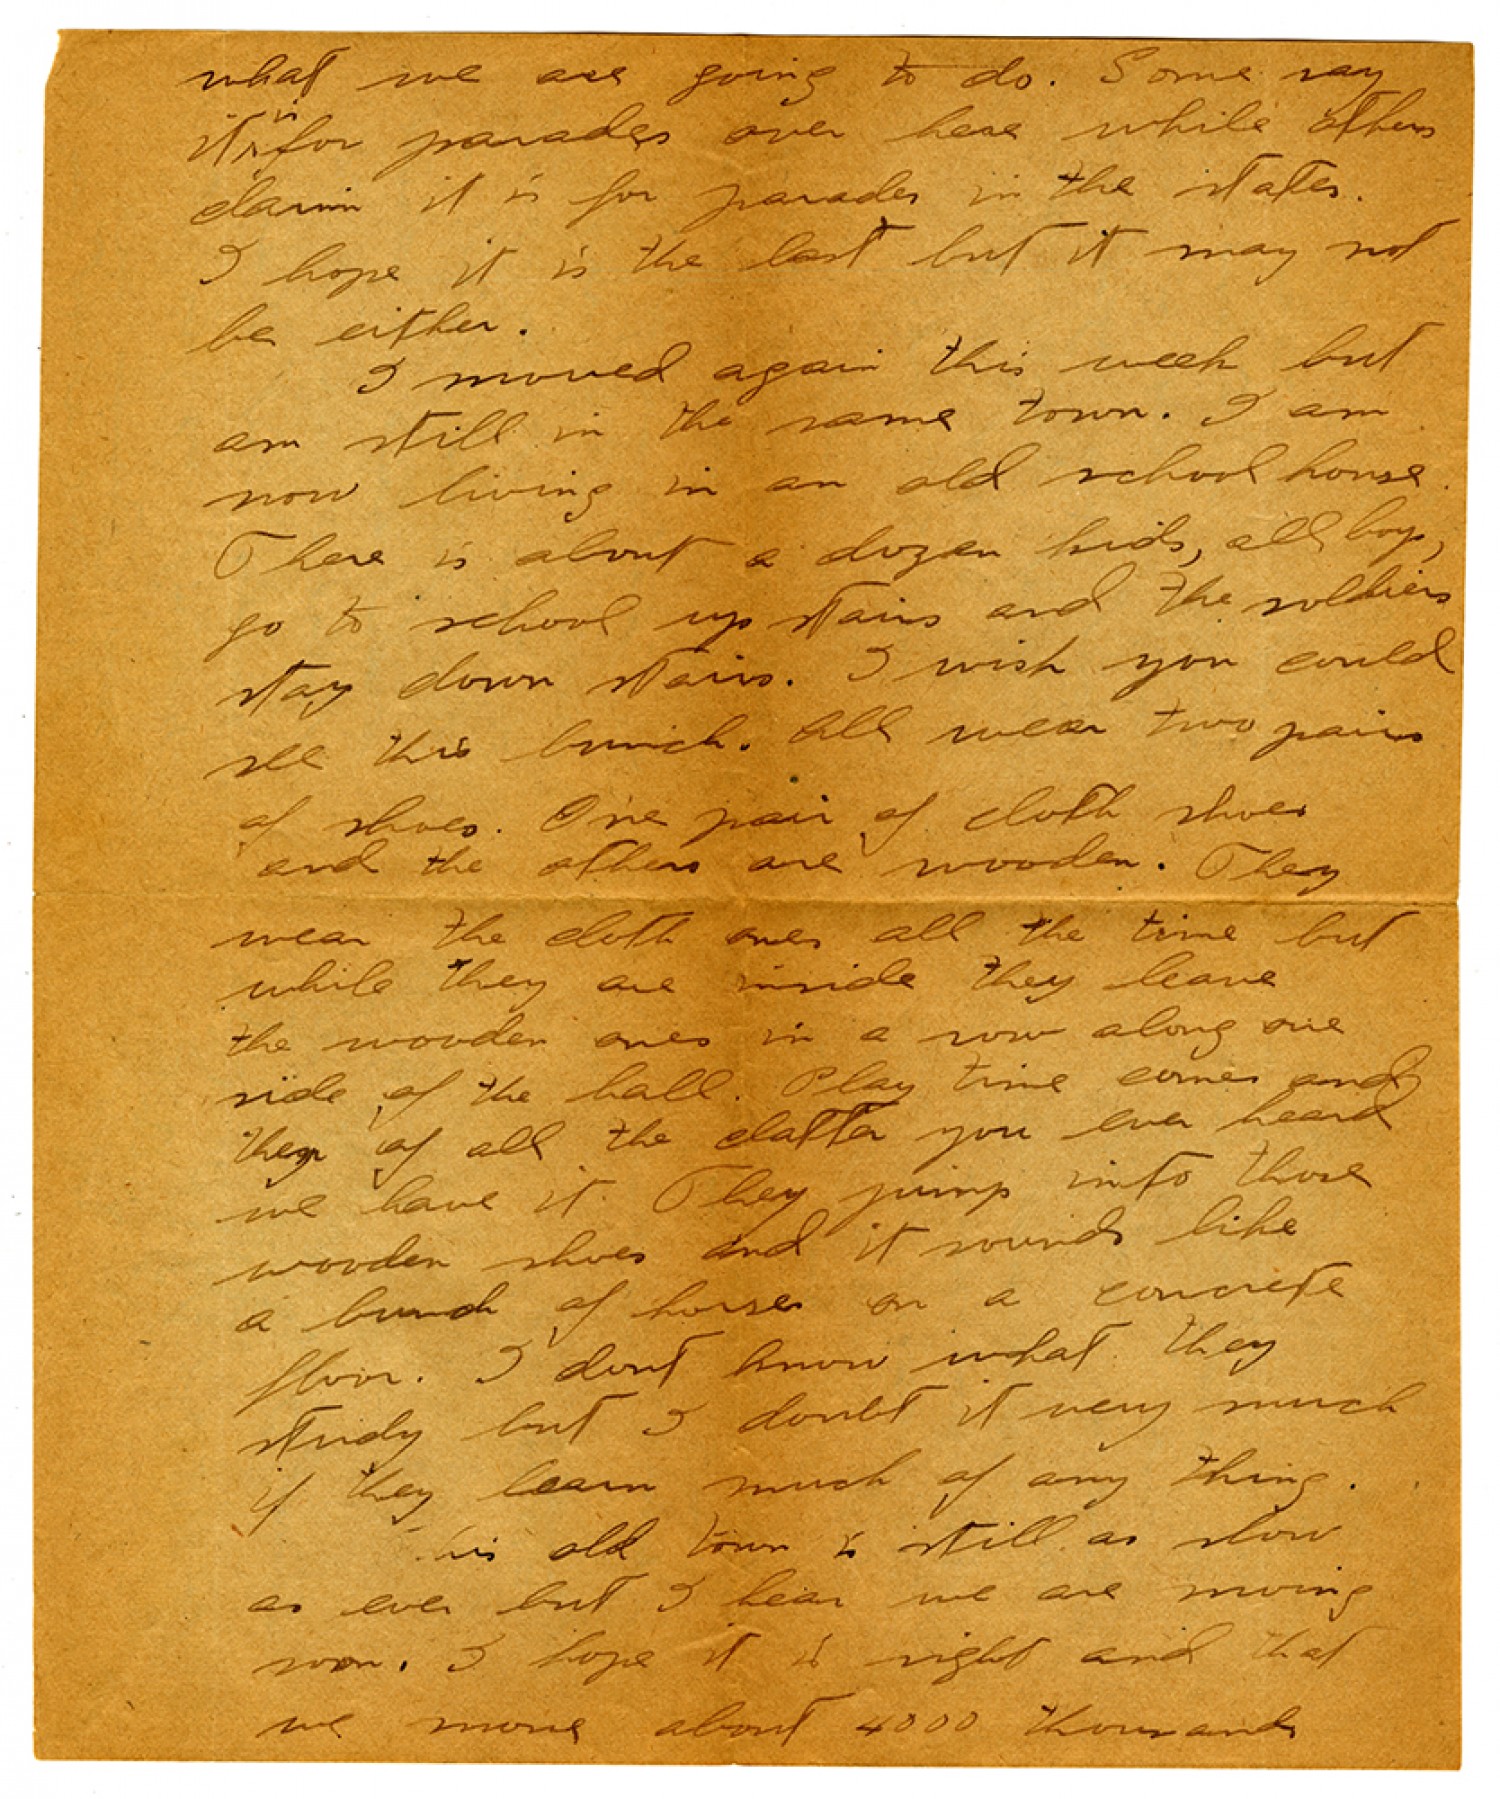 what we are going to do. Some say
it is for parades over here while others
claim it is for parades in the states.
I hope it is the last but it may not
be either.
I moved again this week but
am still in the same town. I am
now living in an old school house.
There is about a dozen kids, all boys,
go to school up stairs and the soldiers
stay down stairs. I wish you could
see this bunch. All wear two pairs
of shoes. One pair of cloth shoes
and the others are wooden. They
wear the cloth ones all the time but
while they are inside they leave
the wooden ones in a row along one
side of the hall. Play time comes and
then of all the clatter you ever heard
we have it. They jump into those
wooden shoes and it sounds like
a bunch of horses on a concrete
floor. I dont know what they
study but I doubt it very much
if they learn much of any thing.
This old town is still as slow
as ever but I hear we are moving
soon. I hope it is right and that
we move about 4000 thousands